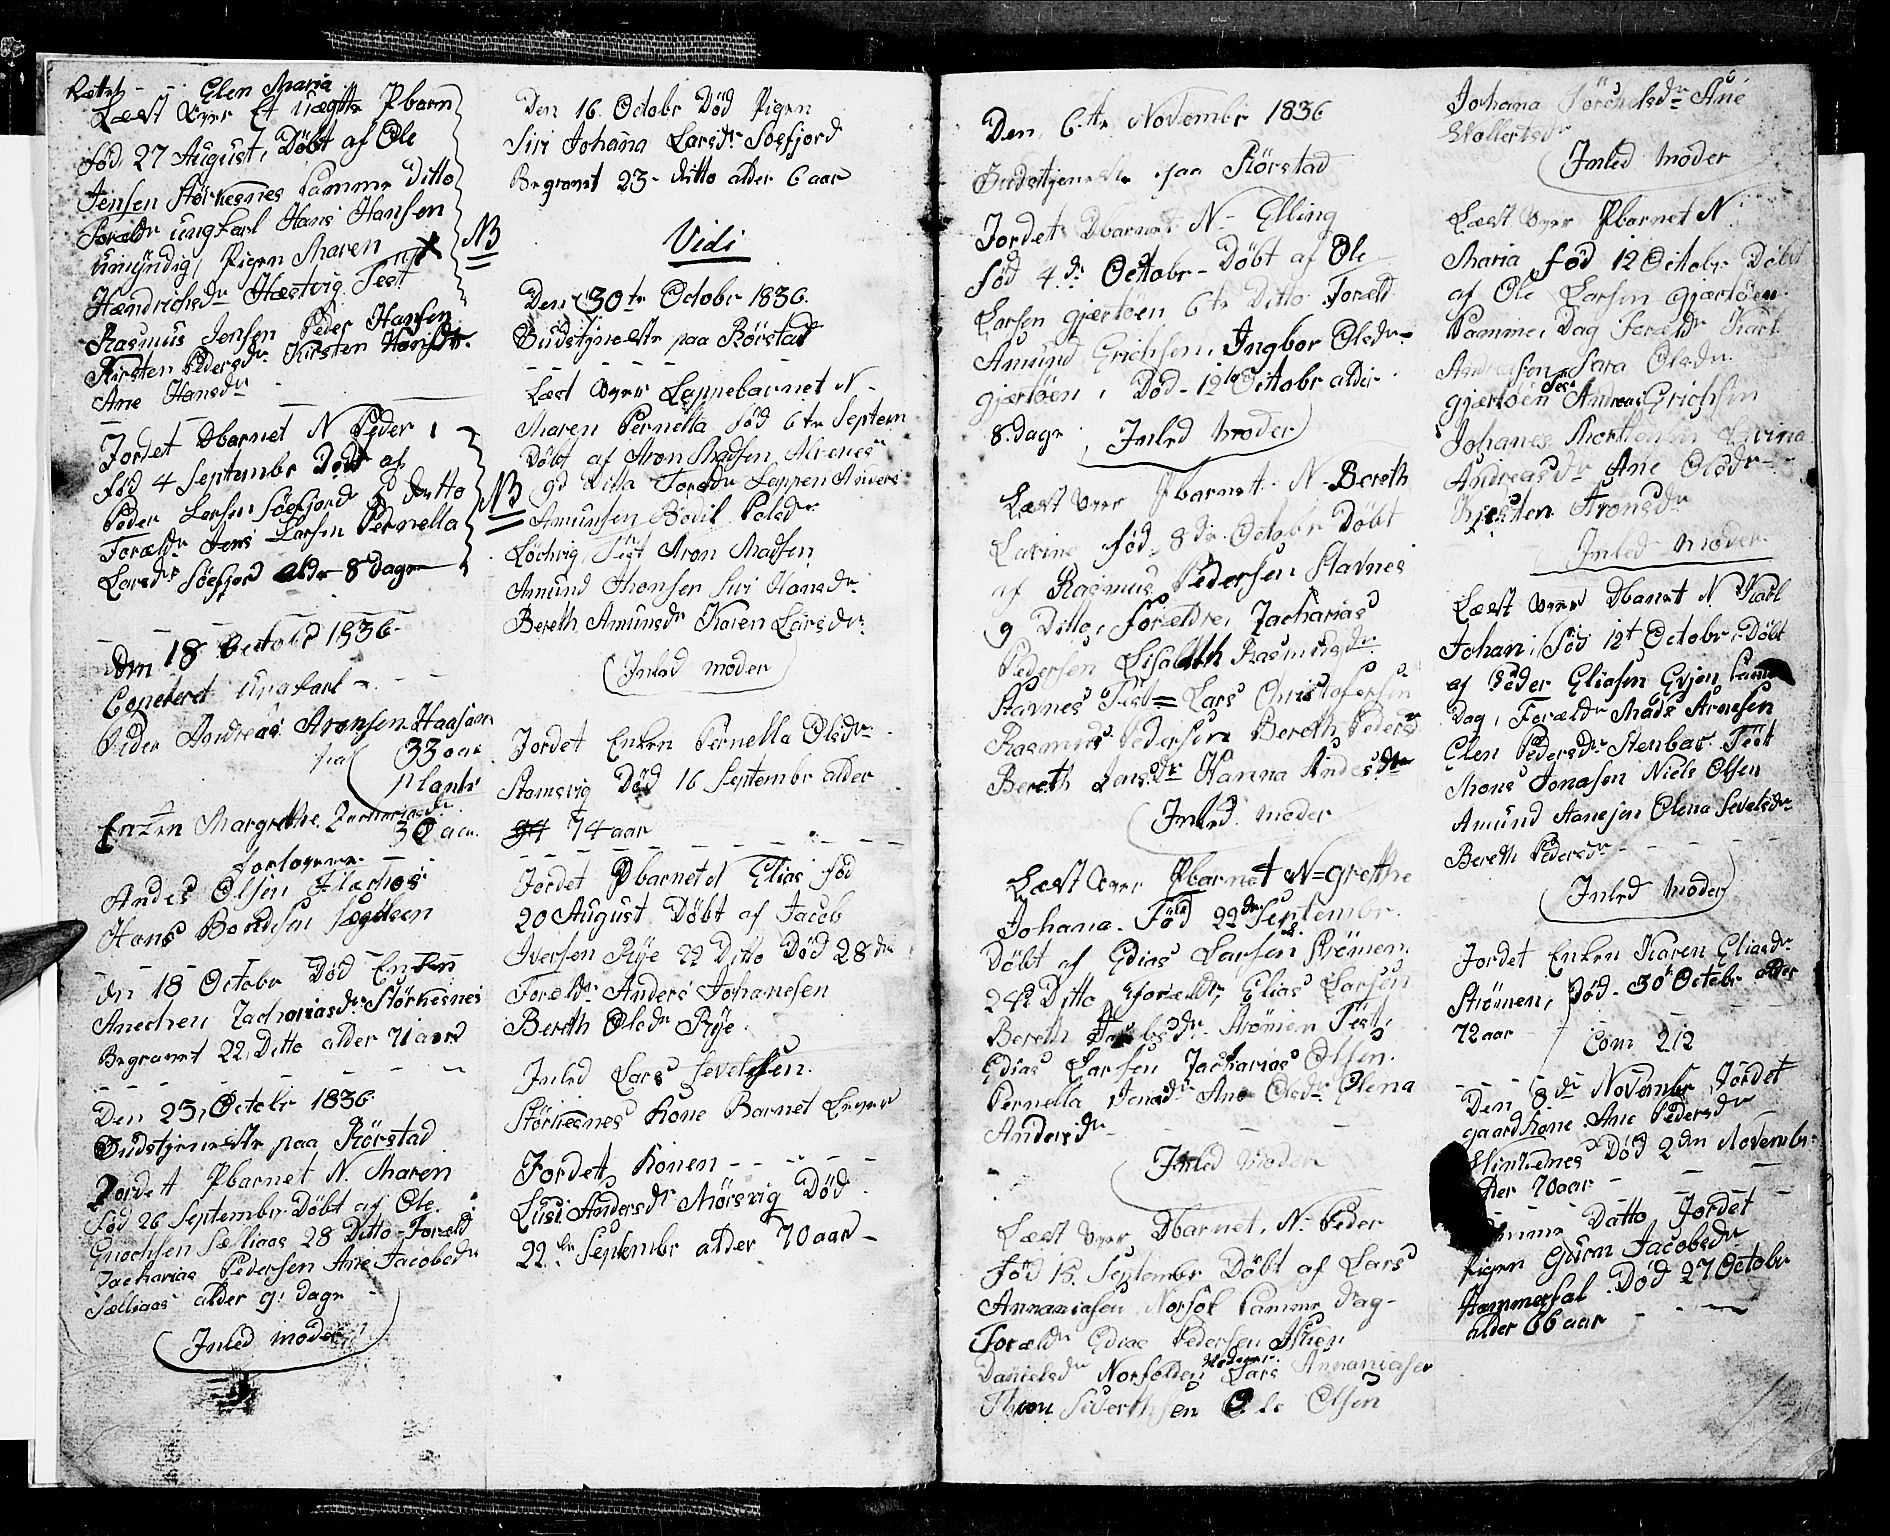 Elen Maria
Læst over Et uægte Pbarn
fød 27 August, Døbt af Ole
Jensen Størkesnes samme ditto
Foreldr ungkarl Hans Hansen
umÿndig, Pigen Maren
Hendrichsdr Hæstvig Test
Rasmus Jensen Peder Hansen
Kirsten Pedersdr Kirsten Hansdr.
Ane Hansdr
NB
Jordet Dbarnet N Peder
fød 4 Septembr Døbt af
Peder Larsen Söefjord ditto
Foreldr Jens Larsen Pernella
Larsdr Söefjord aldr 8 dage
NB
den 18 October 1836
Copuleret ungkarl
Peder Andreas Aronsen Haasan
33 aar
Enken Margrethe Zachariasdr
30 aar
forlovere
Andes Olsen
Hans
den 18 Octobr Død Enken
Anechen Zachariasdr Störkesnes
Begravet 22 Ditto alder 71 aar
Den 23, Octobr 1836
Gudstjeneste paa Rörstad
Jordet Pbarnet N. Maren
fød 26 Septembr Døbt af Ole
Enochsen Sælliaas 28 Ditto Foreld
Zacharias Pedersen Ane Jacobsdr
Sælliaas alder 9. dage
Inled moder
Den 16 Octobr Død Pigen
Siri Johana Larsdr Soefjord
Begravet 23 ditto alder 6 aar
Vidi
Den 30te Octobr 1836.
Gudstjeneste paa Rörstad
Læst over Lappebarnet N
Maren Pernella fød 6te Septem
Døbt af Aron Madsen Alvenes
9d ditto Foreldr Lappen Anders
Amunsen Bodil Palsdr
Lochvig, Test Aron Madsen
Amund Thomsen Siri Hansdr
Bereth Amunsdr Karen Larsdr
Inled moder
Jordet Enken Pernella Olsdr
Stamsvig Død 16 Septembr alder
74 aar
Jordet Pbarnet Elias fød
20 August Døbt af Jacob
Iversen Rÿe 22 Ditto Død 28de
Foreldr Anders Johanesen
Bereth Olsdr Rÿe
Inled Lars
Störkesnes Kone Barnet
Jordet Konen
Lusi Andersdr Mörsvig Død
22de Septembr alder 70 aar
Den 6te Novembr 1836
Gudstjeneste paa Rörstad
Jordet Dbarnet N Elling
fød 4de Octobr Døbt af Ole
Larsen Gjærtöen 6te Ditto Foreld
Amund Erichsen, Ingbor Olsdr
gjærtöen, Død 12te Octobr alder
8. dage
Inled moder
Læst over Pbarnet N Bereth
Larine fød 8de Octobr Døbt
af Rasmus Pedersen Stavnes
9 Ditto, foreldre, Zacharias
Pedersen Lisabeth Rasmusdr
Stavnes Test Lars Christofersen
Rasmus Pedersen Bereth Pedersd
Bereth Larsdr Hanna Andesdr
Inled moder
Læst over Pbarnet N Grethe
Johana Fød 22de Septembr
Døbt af Edias Larsen Strömen
24de Ditto foreldr, Elias Larsen
Bereth Strömen Test,
Edias Larsen Zacharias Olsen
Pernella Jensdr Ane Olsdr Elena
Andersdr
Inled moder
Læst over Dbarnet, N Peder
Fød 15. Septembr Døbt af Lars
Annaniasen Norfol samme dag
Foreldr Edias Pedersen
Danielsdr Norfolden Lars Annaniasen
Siverthsen Ole Olsen
Johana Ane
Inled moder
Læst over Pbarnet N
Maria fød 12 Octobr Døbt
af Ole Larsen Gjærtöen
samme, Dag foreldr Karl
Andreasen Sara Olsdr
gjærtöen Andreas Erichsen
Johanes
Andreasdr Ane Olsdr
Kjesten Aronsdr
Inled moder
Læst over Dbarnet N. Karl
Johan, fød 12t Octobr, Døbt
af Peder Eliasen samme
Dag, Foreldr Mads Aronsen
Elen Pedersdr Stenbac Test
Mons Jonasen Niels Olsen
Amund Hansen Olena
Bereth Pedersdr
Inled moder
Jordet Enken Karen Eliasdr
Strömen, Død 30 Octobr alder
72 aar
Com 212
Den 8de Novembr Jordet
gaardkone Ane Pedersdr
Død 2den Novembr
alder 70 aar
Ditto Jordet
Pigen Guren Jacobsdr
Hammerfal. Død 27 Octobr
alder 66 aar